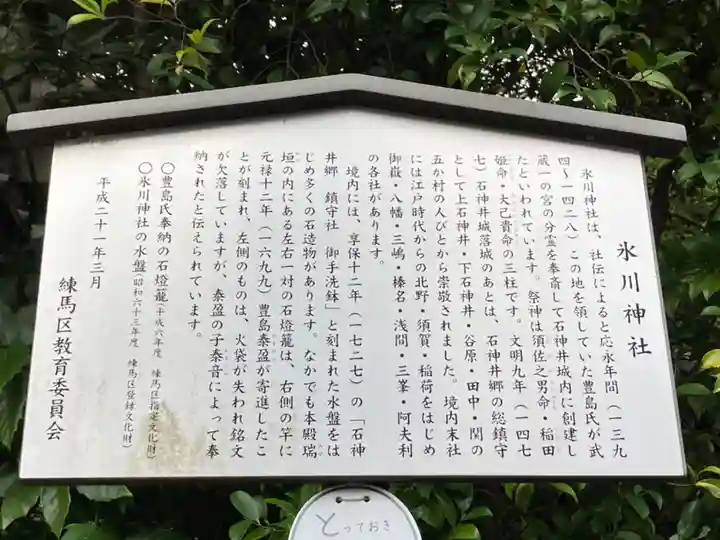 氷川神社
氷川神社は、社伝によると応永年間（一三九
四～一四二八）この地を領していた豊島氏が武
蔵一の宮の分霊を奉斎して石神井城内に創建し
たといわれています。祭神は須佐之男命・稲田
姫命・大己貴命の三柱です。文明九年（一四七
七）石神井城落城のあとは、石神井郷の総鎮守
として上石神井・下石神井・谷原・田中・関の
五か村の人びとから崇敬されました。境内末社
には江戸時代からの北野・須賀・稲荷をはじめ
御嶽・八幡・三嶋・榛名・浅間・三峯・阿夫利
の各社があります。
境内には、享保十二年（一七二七）の「石神
井郷　鎮守社　御手洗鉢」と刻まれた水盤をは
じめ多くの石造物があります。なかでも本殿瑞
垣の内にある左右一対の石燈籠は、右側の竿に
元禄十二年（一六九九）豊島泰盈が寄進したこ
とが刻まれ、左側のものは、火袋が失われ銘文
が欠落していますが、泰盈の子泰音によって奉
納されたと伝えられています。
○豊島氏奉納の石燈籠（平成六年度　練馬区指定文化財）
○氷川神社の水盤（昭和六十三年度　練馬区登録文化財）
平成二十一年三月
練馬区教育委員会
とっておき